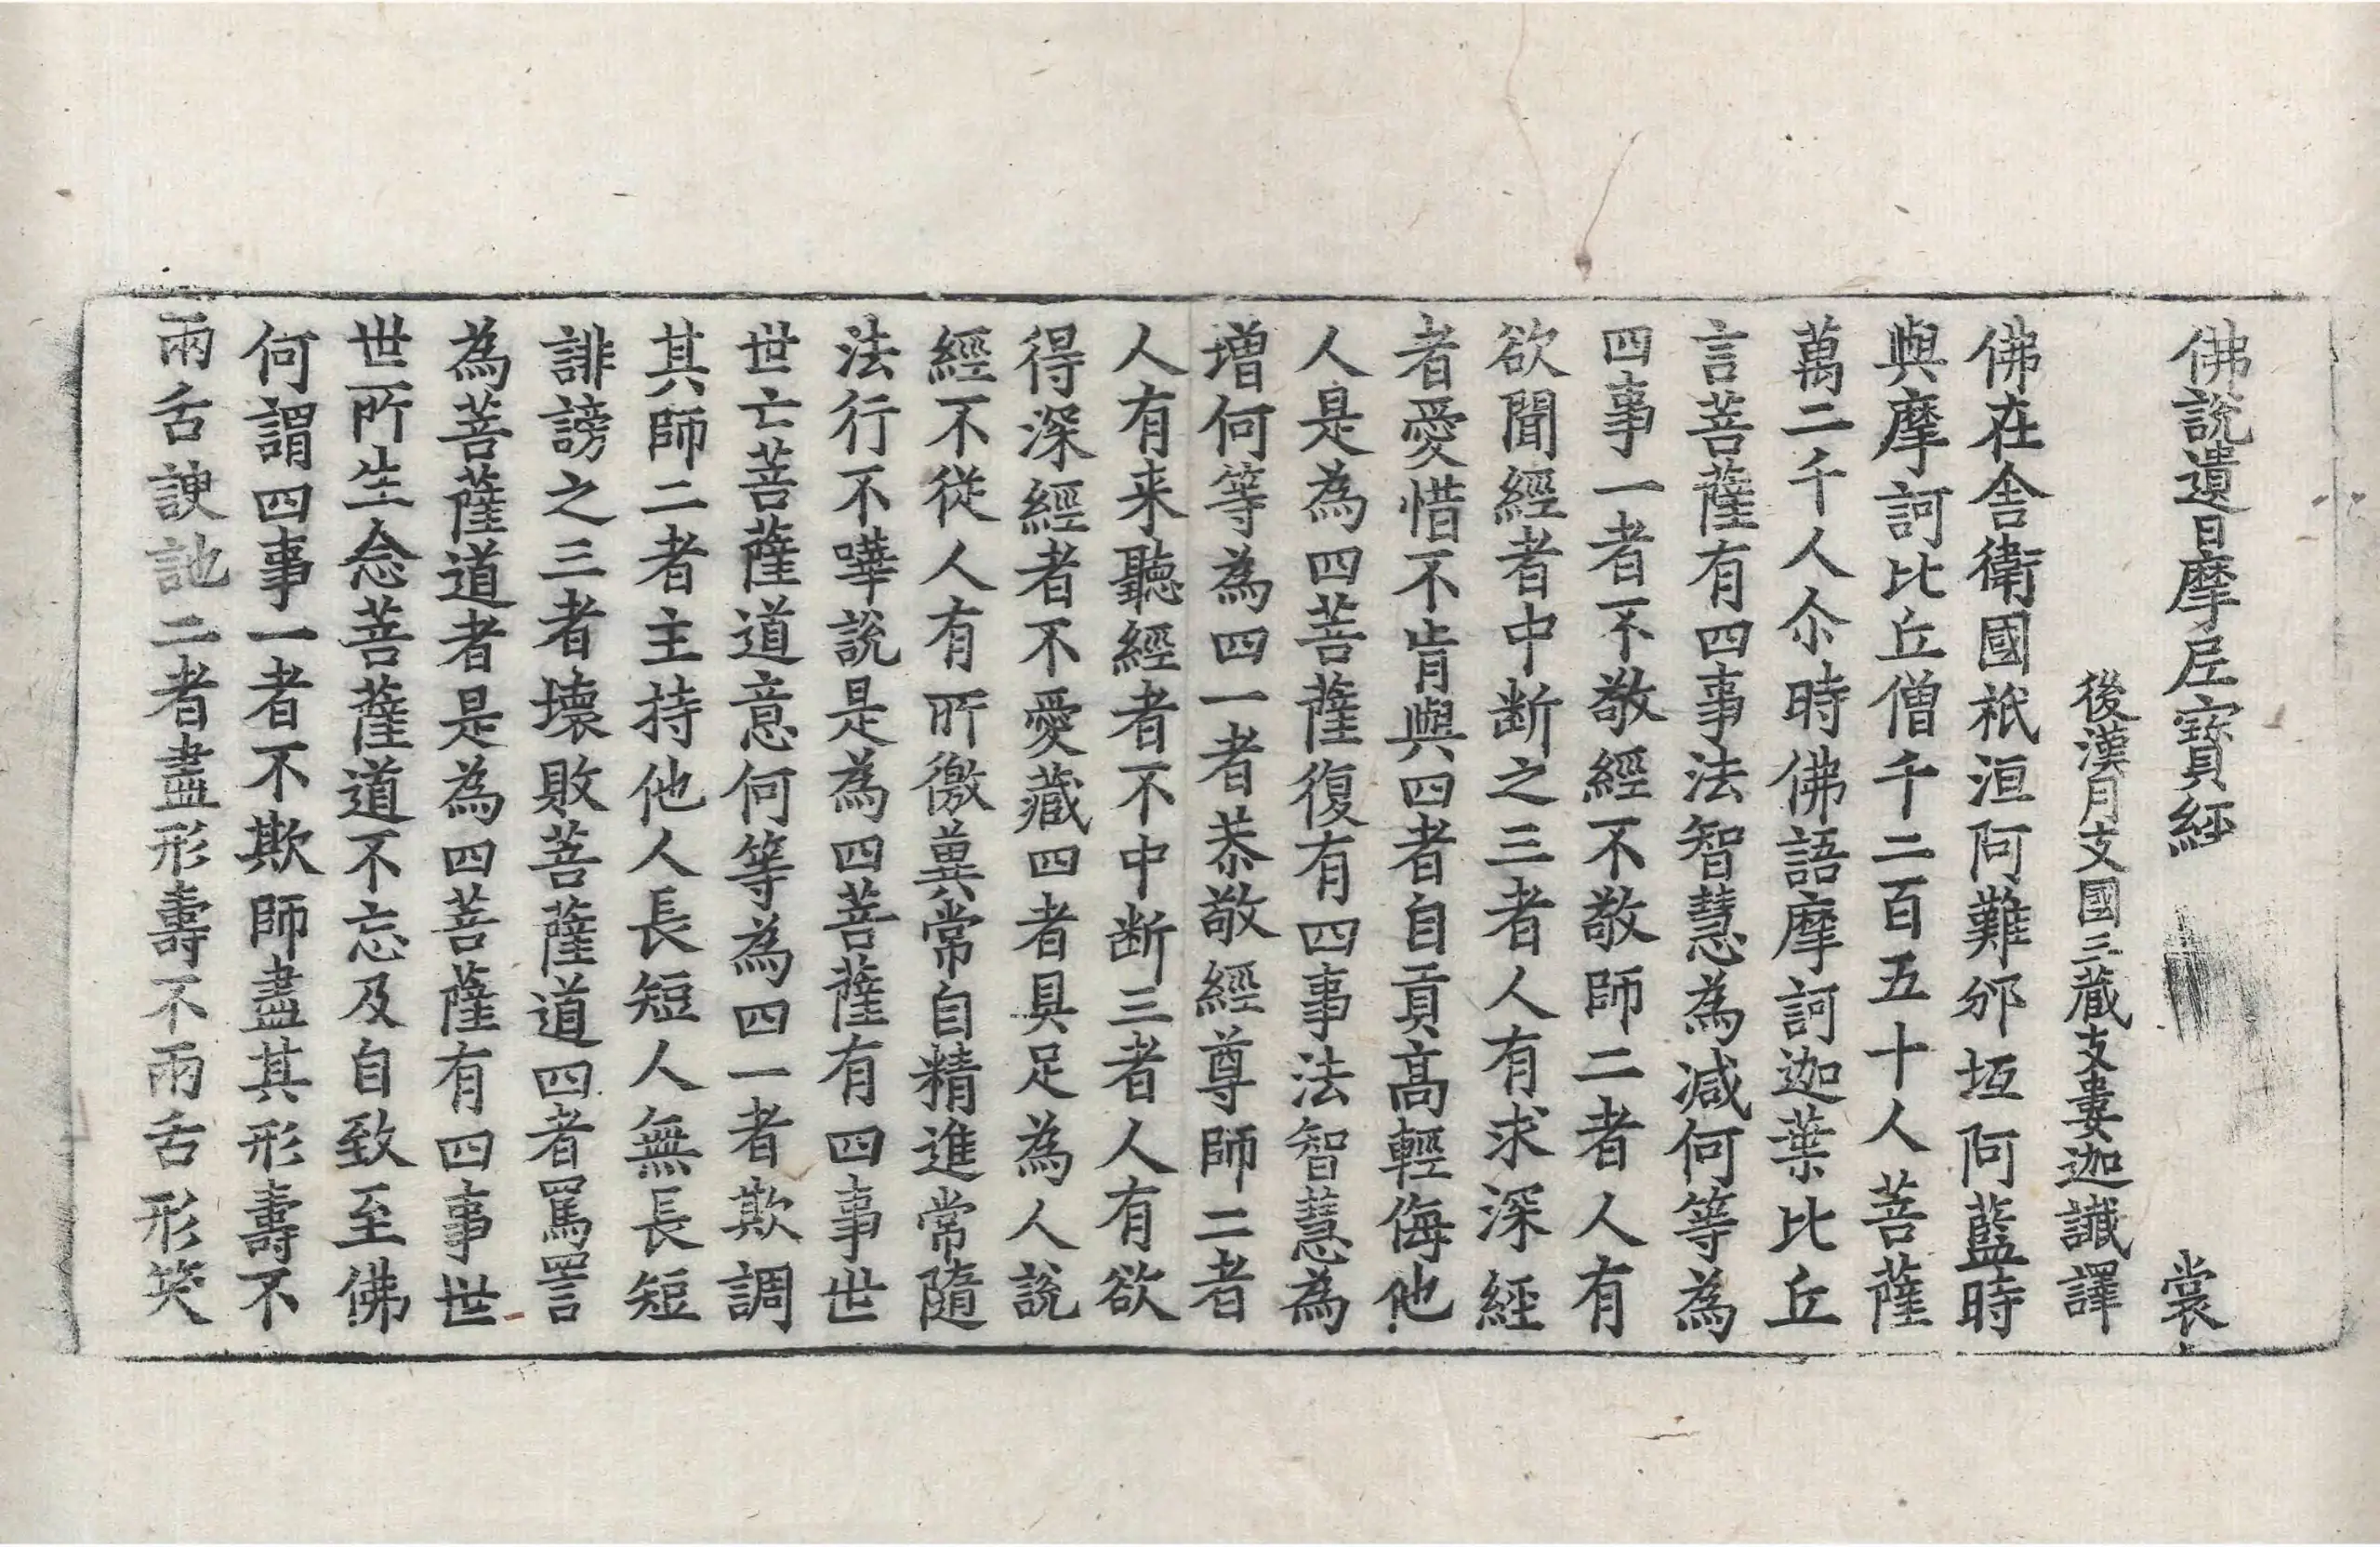 佛說遺日摩尼寶經 裳
後漢月支國三藏支婁迦讖譯
佛在舍衛國祇洹阿難邠坻阿藍時
與摩訶比丘僧千二百五十人菩薩
萬二千人尒時佛語摩訶迦葉比丘
言菩薩有四事法智慧為减何等為
四事一者不敬經不敬師二者人有
欲聞經者中断之三者人有求深經
者愛惜不肯與四者自貢高輕侮他
人是為四菩薩復有四事法智慧為
增何等為四一者恭敬經尊師二者
人有来聽經者不中断三者人有欲
得深經者不愛藏四者具足為人說
經不從人有所徼兾常自精進常隨
法行不嘩說是為四菩薩有四事世
世亡菩薩道意何等為四一者欺調
其師二者主持他人長短人無長短
誹謗之三者壞敗菩薩道四者罵詈
為菩薩道者是為四菩薩有四事世
世所生念菩薩道不忘及自致至佛
何謂四事一者不欺師盡其形壽不
兩舌諛訑二者盡形壽不兩舌形笑